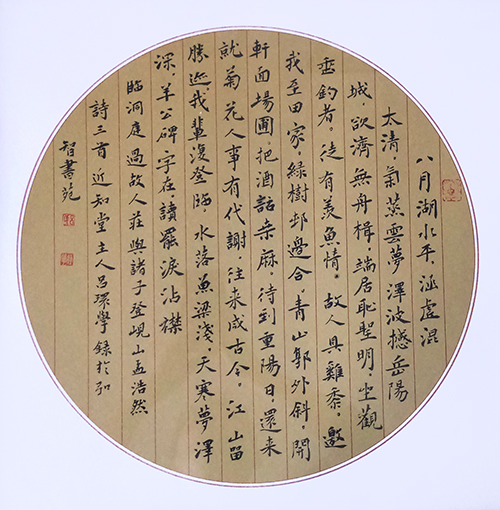 八月湖水平,涵虛混
太清,氣蒸雲夢澤波撼岳陽
城,欲濟無舟楫,端居恥聖明,坐觀
垂釣者。徒有羨魚情。故人具雞黍,邀
我至田家,綠樹邨邊合,青山郭外斜,開
軒面場圃,把酒話桑麻,待到重陽日,還来
就菊花人事有代謝,往来成古今。江山留
勝迹,我輩復登臨,水落魚梁淺,天寒夢澤
深,羊公碑字在讀罷淚沾襟
臨洞庭過故人莊與諸子登峴山孟浩然
詩三首近知堂主人呂環學錄於弘
智書苑